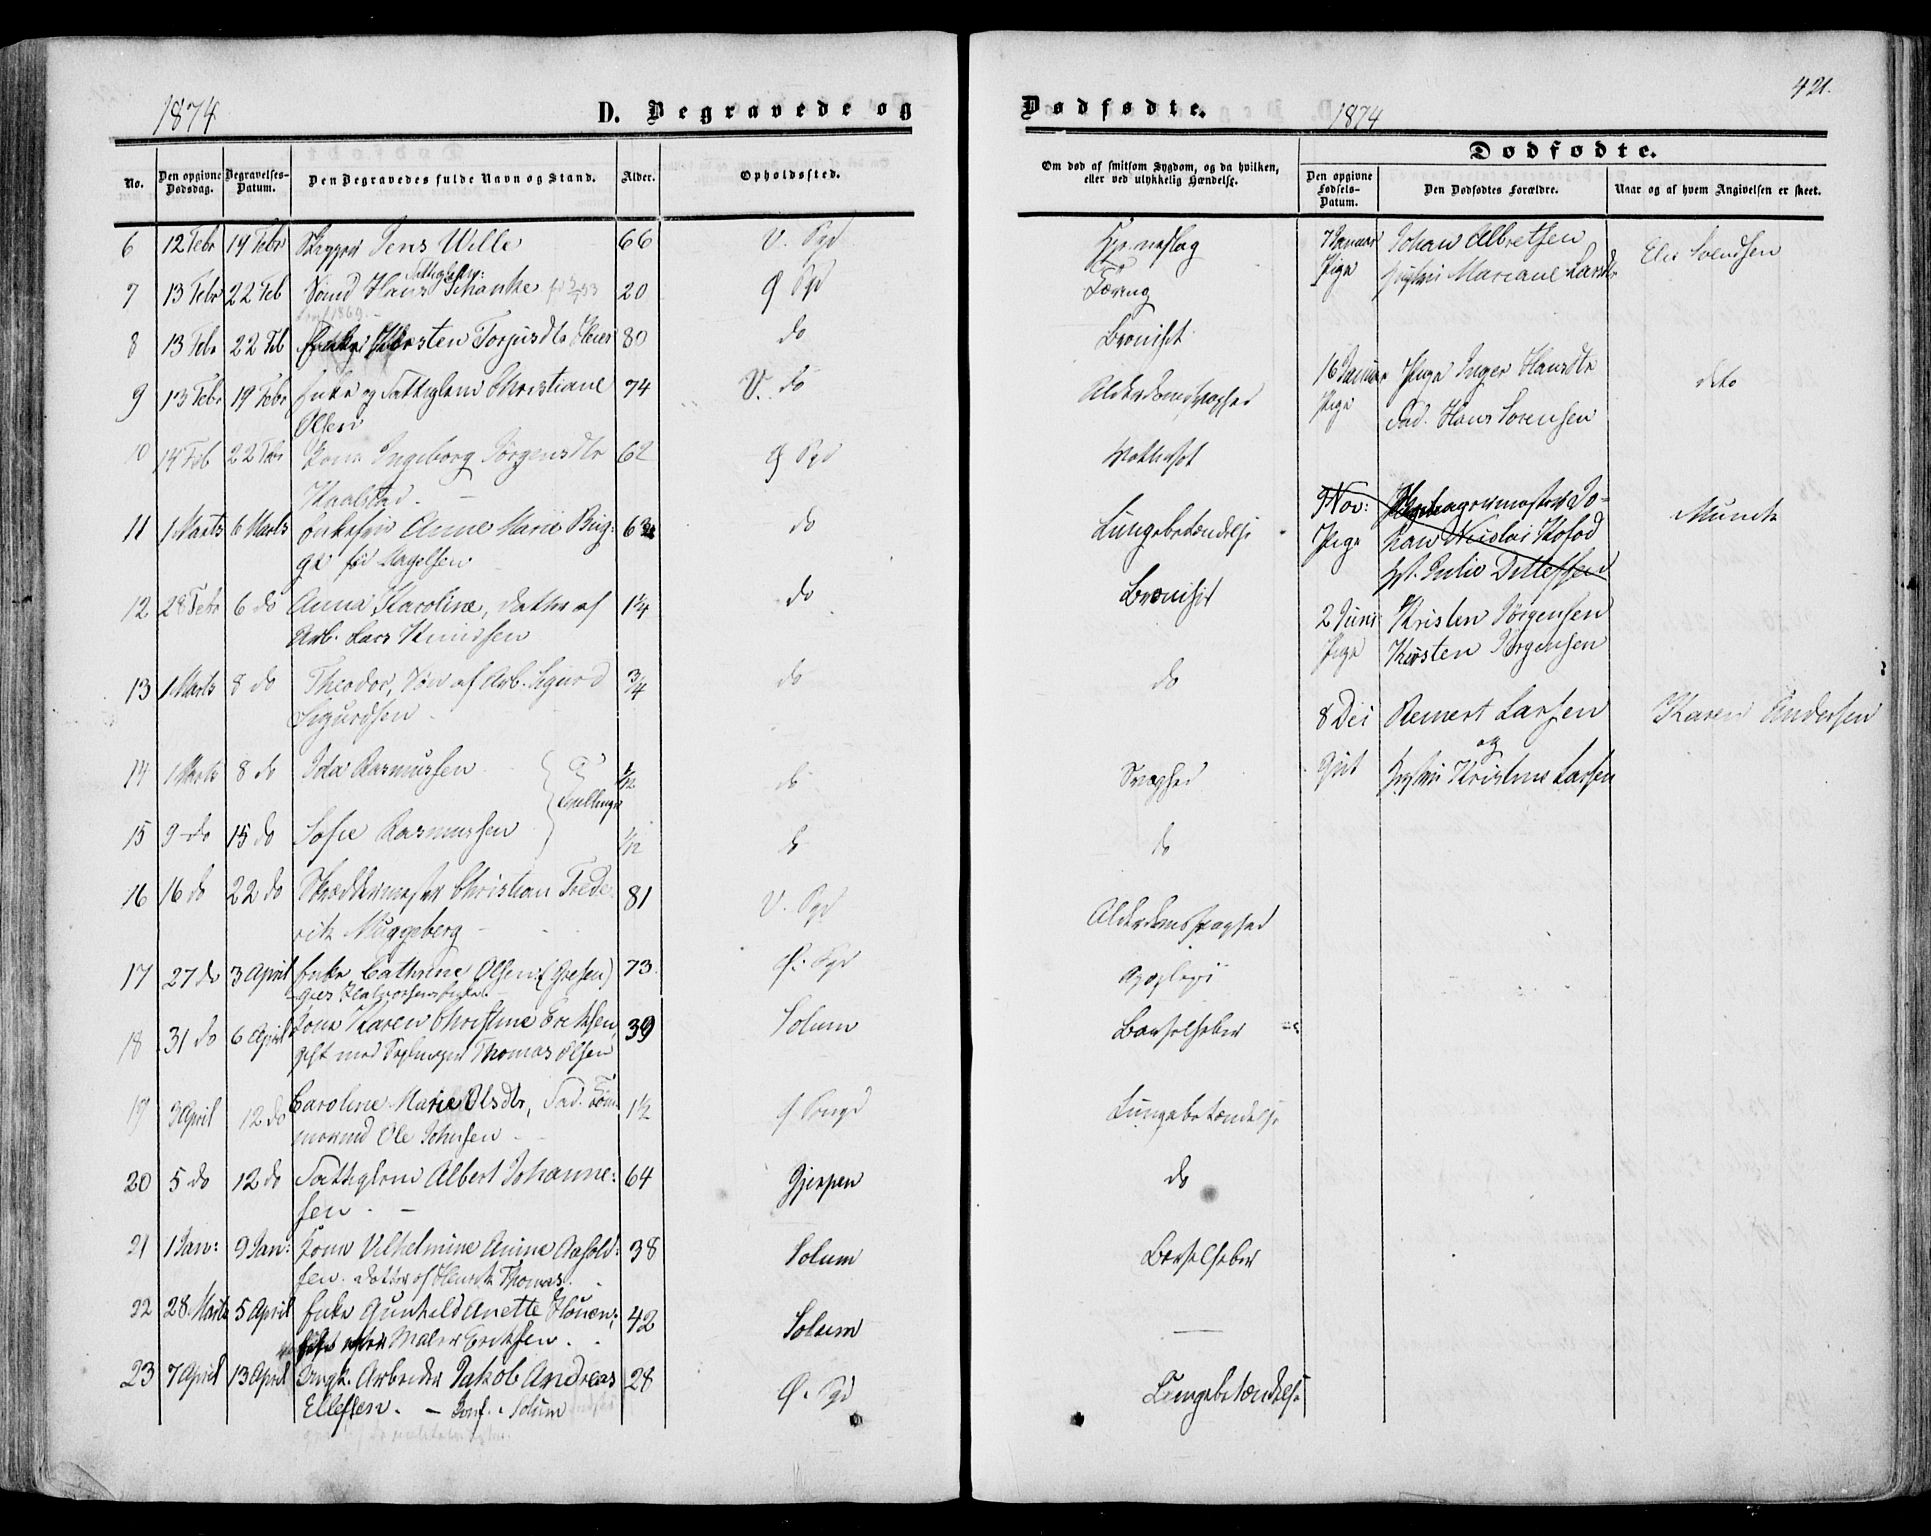 1874
D. Begravede og
No.
Den opgivne Dødsdag.
Begravelses-Datum.
Den Begravedes fulde Navn og Stand.
Alder.
Opholdssted.
6 12 Febr 19 Febr Skipper Jens Wille 66 V. Pgd
Fattiglem:
7 13 Febr 22 Feb Hans Schanke 20 Ø Pgd
Conf 1869.
8 13 Febr 22 Feb Enke Kirsten Torjusdtr 80 do
9 13 Febr 19 Febr Enke og Fattiglem Christiane 74 V. do
Olsen
10 14 Feb 22 Febr Kone Ingeborg Jørgensdtr 62 Ø Pgd
11 1 Marts 6 Marts Enkefru Anne Marie Brig- 63 do
ge fød Magelsen
12 28 Febr 6 do Anna Karoline, Datter af 1¼ do
Arb. Lars Knudsen
13 1 Marts 8 do Theodor, Søn af Arb. Sigurd ¾ do
Sigurdsen
14 1 Marts 8 do Ida Rasmussen 1/12 do
Tvillinger
15 9 do 15 do Sofie Rasmussen 1/12 do
16 16 do 22 do Skræddermester Christian Frede- 81 V. Pgd
rik Muggeberg
17 27 do 3 April Enke Cathrine Olsen 73 Ø. Pgd
18 31 do 6 April Kone Karen Christine Eriksen 39 Solum
gift med Thomas Olsen
19 3 April 12 do Caroline Marie Olsdtr, Fad. Tøm- 1½
mermd Ole Johnsen
20 5 do 12 do Fattiglem Albert Johanne- 64 Gjerpen
sen
21 1 Jan: 9 Jan: Kone Vilhelmine Anine 38 Solum
sen. Datter af Henrik Thomas.
22 28 Marts 5 April Enke Gunhild Anette Houen; 42 Solum
efter Maler Eriksen
23 7 April 13 April Ungk. Arbeider Jakob Andreas 28 Ø. Pgd
Ellefsen. - Conf. Solum
421.
Dødfødte.
1874
Om død af smitsom Sygdom, og da hvilken,
eller ved ulykkelig Hændelse.
Dødfødte.
Den opgivne Fødsels-Datum.
Den Dødfødtes Forældre.
Naar og af hvem Angivelsen er skeet.
7 Januar Johan Albretsen
Pige Hustru Mariane Larsdtr
Else Svendsen
Tæring
Bronisit
16 Januar Pige Inger Hansdtr
dito
Alderdomssvaghed
Pige Fad. Hans Sørensen
Vattersot
9 Nov:
Munch
Lungebetændelse
Pige Nicolai Kofod
H. Julie Ditlefsen
Bronisit
2 Juni Kristen Jørgensen
Pige Kirsten Jørgensen
do
8 Dec Reinert Larsen
Karen Andersen
og
Svaghed
Gut Hustru Kristine Larsen
do
Alderdomssvaghed
Apoplexi
Barselfeber
Lungebetændelse
do
Barselfeber
Lungebetændelse